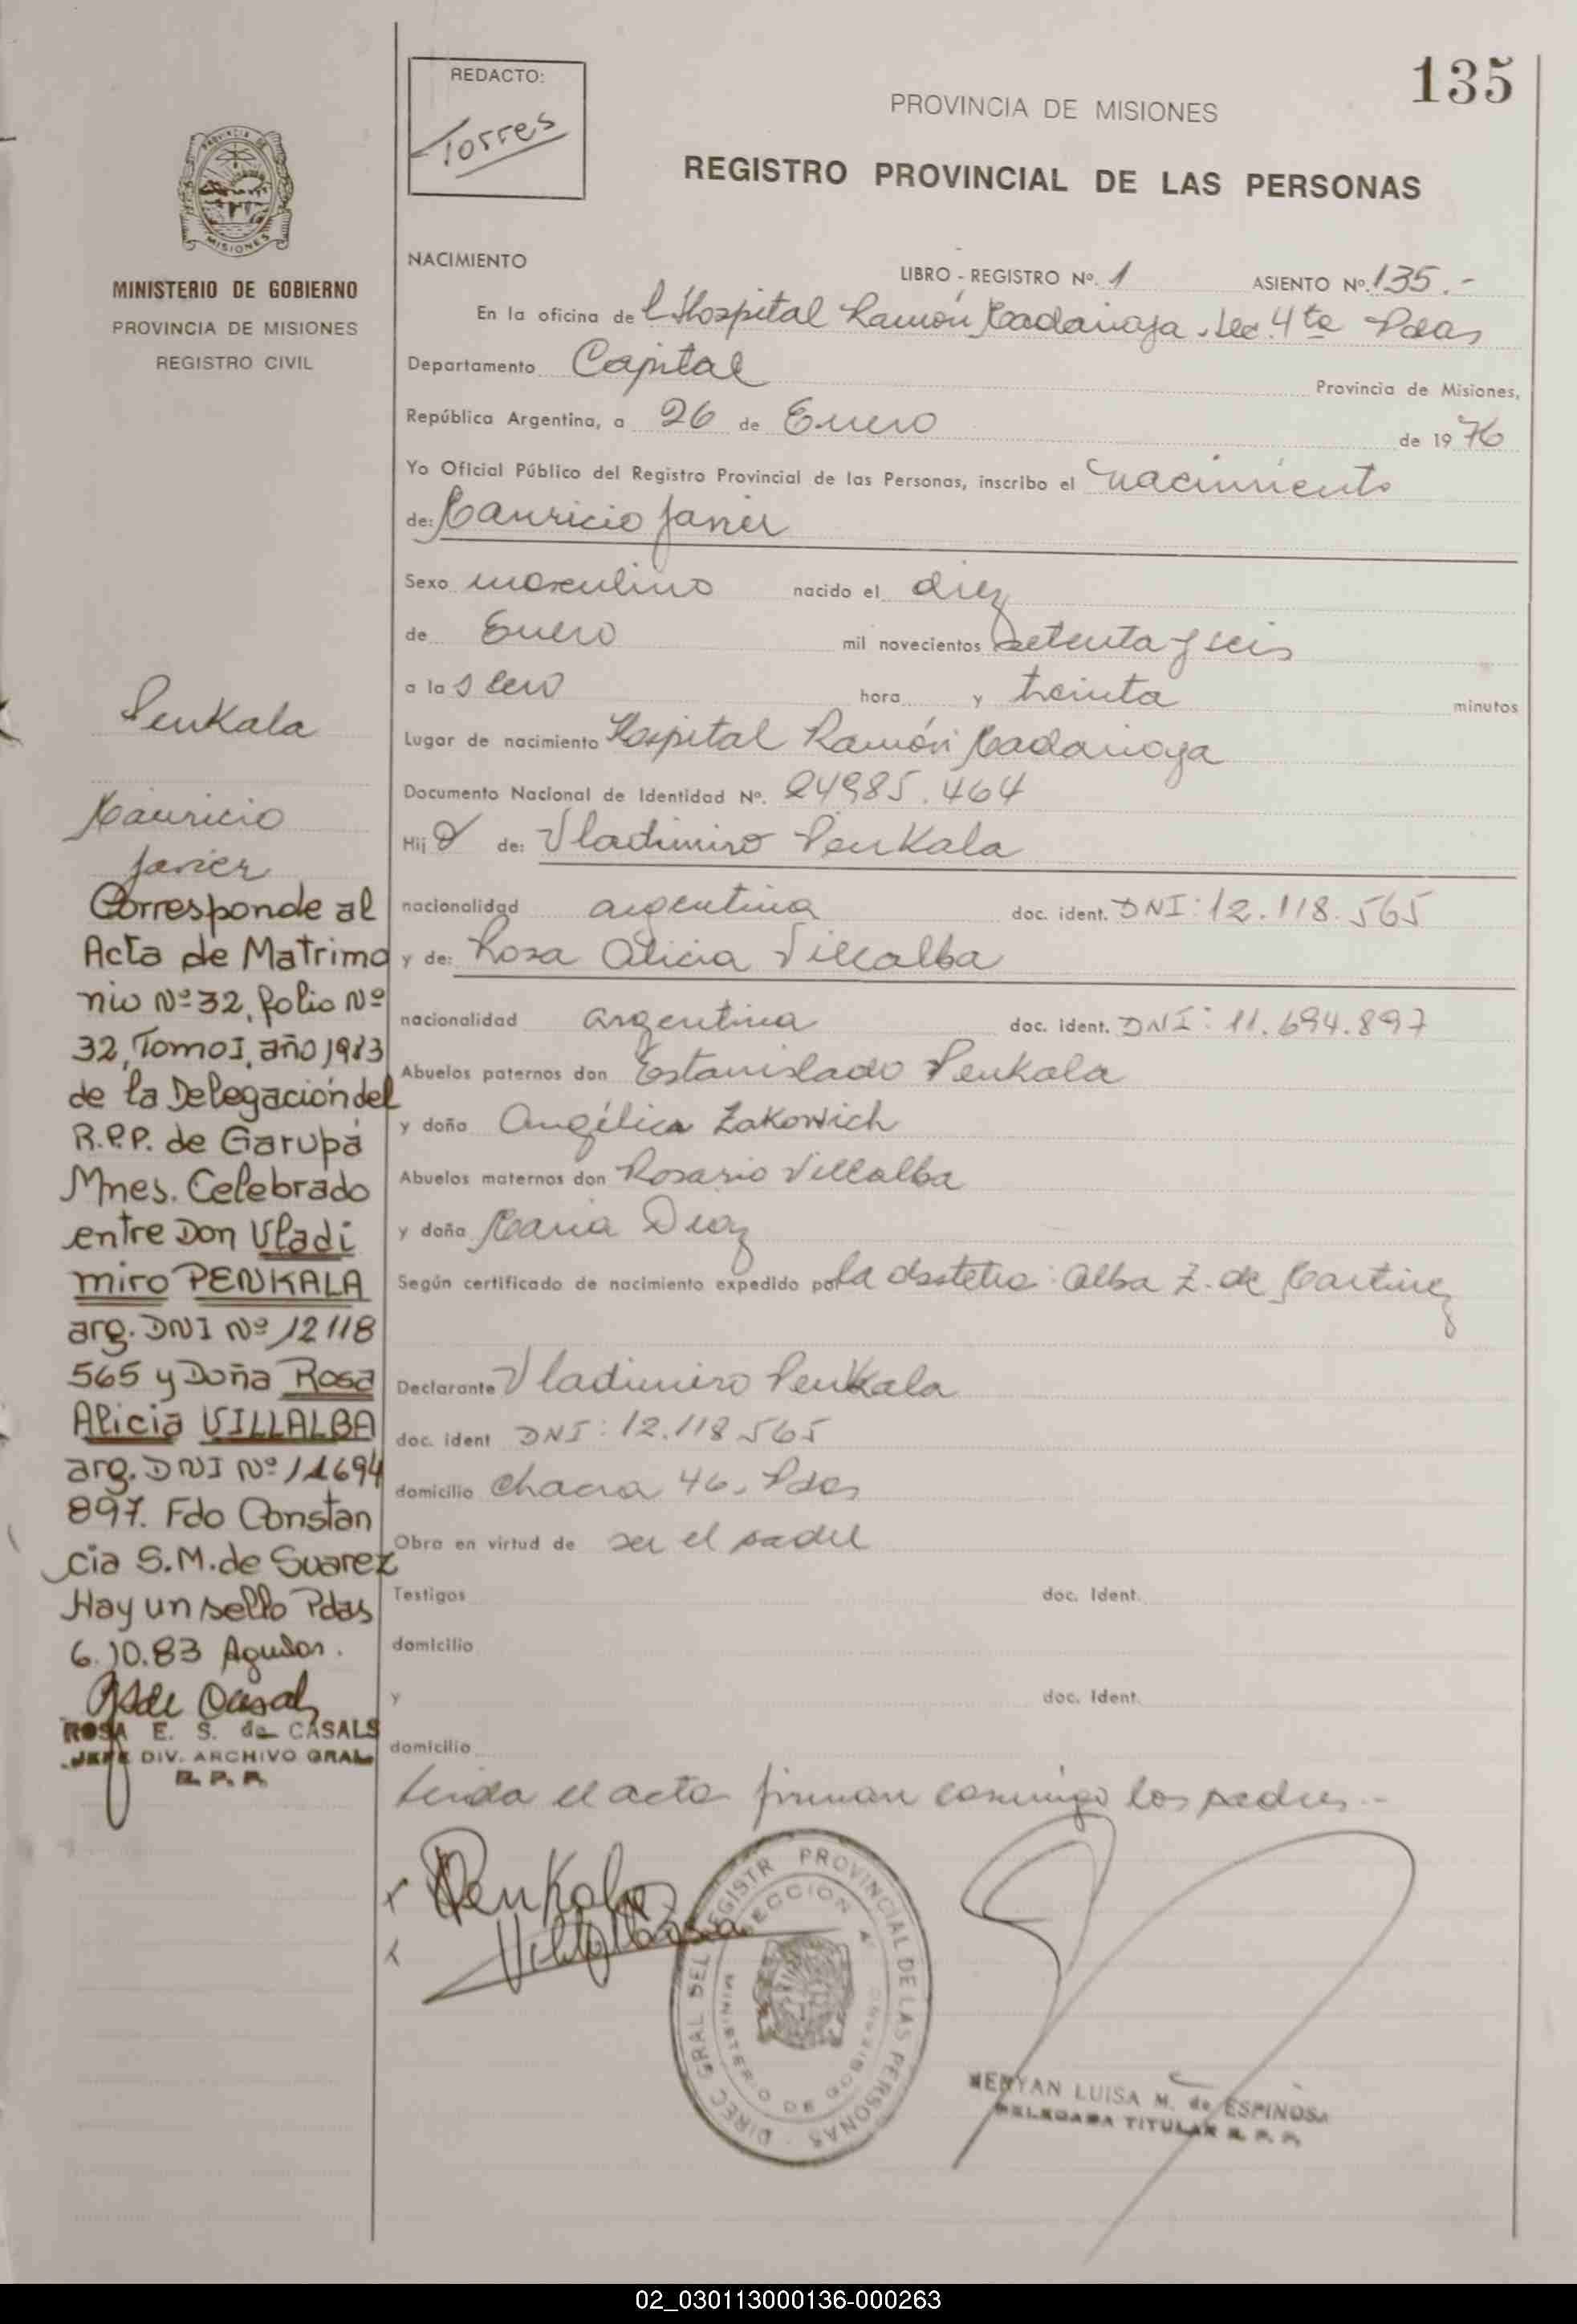 135
REDACTO:
Torres
PROVINCIA DE MISIONES
REGISTRO PROVINCIAL DE LAS PERSONAS
PROVINCIA DE
MISIONES
MINISTERIO DE GOBIERNO
PROVINCIA DE MISIONES
REGISTRO CIVIL
NACIMIENTO
LIBRO - REGISTRO Nº. 1 ASIENTO Nº. 135.-
En la oficina del Hospital Ramón Madariaga. Sec. 4ta Pdas
Departamento Capital Provincia de Misiones,
República Argentina, a 26 de Enero de 1976
Yo Oficial Público del Registro Provincial de las Personas, inscribo el nacimiento
de: Mauricio Javier
Sexo masculino nacido el diez
de Enero mil novecientos setenta y seis
a las cero hora y treinta minutos
Lugar de nacimiento Hospital Ramón Madariaga
Documento Nacional de Identidad Nº. 24985.464
Hijo de: Vladimiro Penkala
nacionalidad argentina doc. ident. DNI: 12.118.565
y de: Rosa Alicia Villalba
nacionalidad argentina doc. ident. DNI: 11.694.897
Abuelos paternos don Estanislado Penkala
y doña Angélica Zakowich
Abuelos maternos don Rosario Villalba
y doña Maria Diaz
Según certificado de nacimiento expedido por la obstetra: Alba Z. de Martinez
Declarante Vladimiro Penkala
doc. ident DNI: 12.118.565
domicilio Chacra 46. Pdas
Obra en virtud de ser el padre
Testigos doc. Ident.
domicilio
y doc. Ident.
domicilio
Leida el acta firman conmigo los padres.-
Penkala
Mauricio
Javier
Corresponde al
Acta de Matrimo
nio Nº 32, folio Nº
32, Tomo I, año 1983
de la Delegación del
R.P.P. de Garupá
Mnes. Celebrado
entre Don Vladi
miro PENKALA
arg. DNI Nº 12118
565 y Doña Rosa
Alicia VILLALBA
arg. DNI Nº 11694
897. Fdo Constan
cia S.M. de Suarez
Hay un sello Pdas
6.10.83 Aguilar.
ROSA E. S. de CASALS
JEFE DIV. ARCHIVO GRAL
R. P. P.
x Penkala
x Villalba Rosa
DIREC GRAL DEL REGISTR PROVINCIAL DE LAS PERSONAS
SECCION 4ª
MINISTERIO DE GOBIERNO
LUISA M. de ESPINOSA
DELEGADA TITULAR R. P. P.
02_030113000136-000263